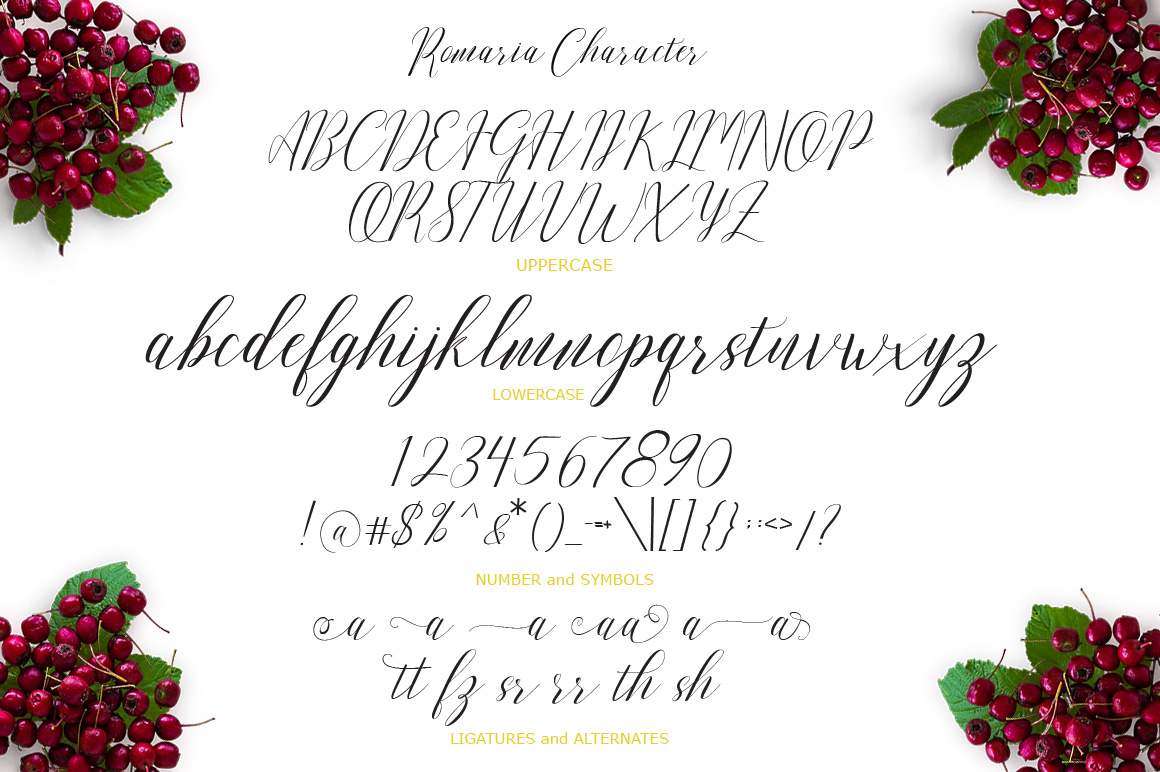 Romaria Character
ABCDEFGHIJKLMNOP
QRSTUVWXYZ
UPPERCASE
abcdefghijklmnopqrstuvwxyz
LOWERCASE
1234567890
!@#$%^&*()_-=+\|[]{};:<>/?
NUMBER and SYMBOLS
a a a aa a a
tt fz sr rr th sh
LIGATURES and ALTERNATES